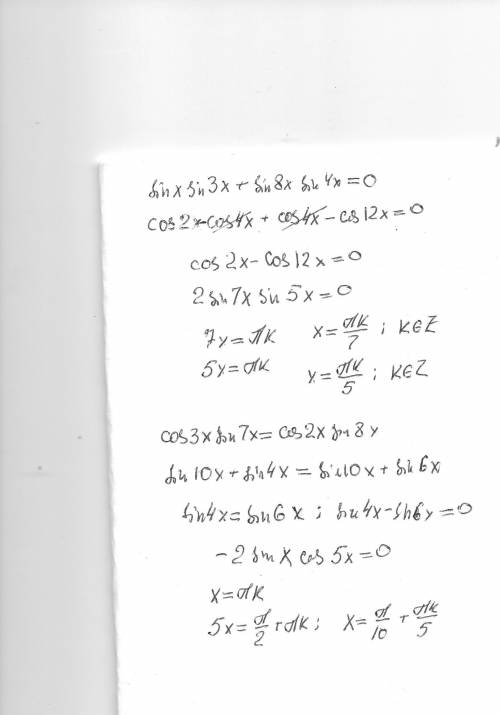 sin x sin 3x + sin 8x sin 4x = 0
cos 2x - cos 4x + cos 4x - cos 12x = 0
cos 2x - cos 12x = 0
2 sin 7x sin 5x = 0
7x = πk x = πk/7 ; k∈Z
5x = πk x = πk/5 ; k∈Z
cos 3x sin 7x = cos 2x sin 8x
sin 10x + sin 4x = sin 10x + sin 6x
sin 4x = sin 6x ; sin 4x - sin 6x = 0
-2 sin x cos 5x = 0
x = πk
5x = π/2 + πk ; x = π/10 + πk/5